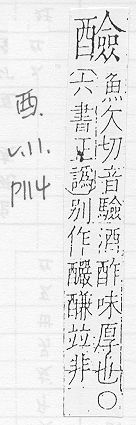 醶
魚欠切音驗酒酢味厚也〇
六書正譌別作釅竝非
酉.
v.11.
p114